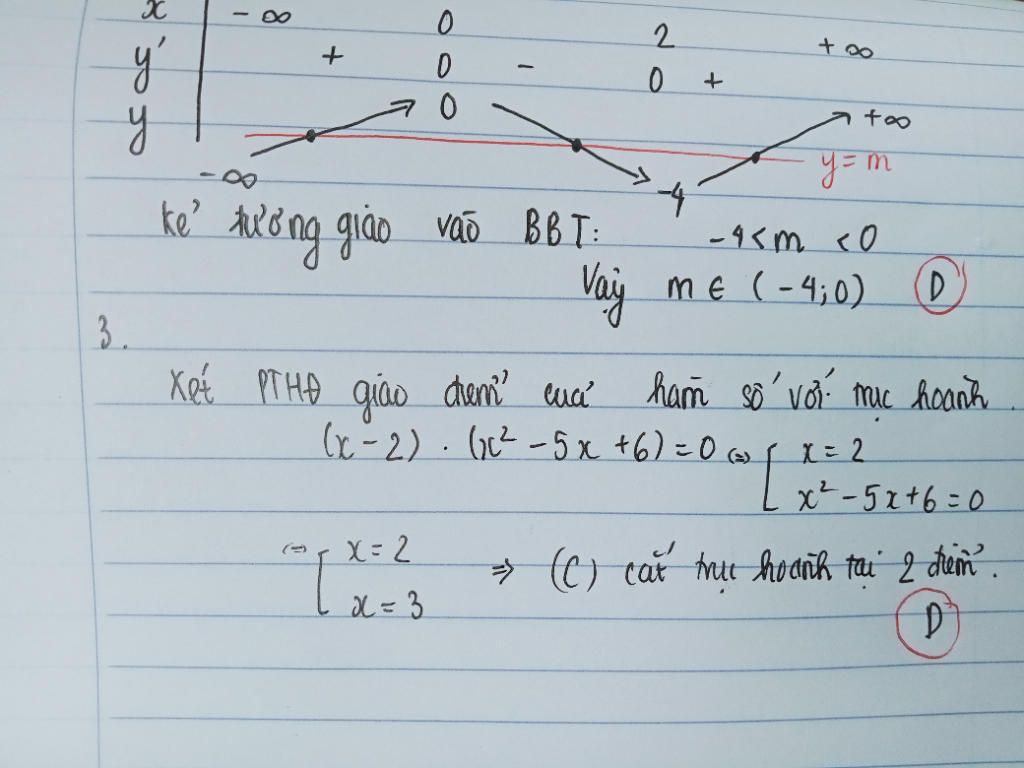 x -∞ 0 2 +∞
y' + 0 - 0 +
y -∞ 0 -4 +∞
y = m
Kẻ tương giao vào BBT: -4 < m < 0
Vậy m ∈ (-4;0) D
3.
Xét PTHĐ giao điểm của hàm số với trục hoành.
(x - 2) . (x² - 5x + 6) = 0 <=> [ x = 2
x² - 5x + 6 = 0
<=> [ x = 2
x = 3 => (C) cắt trục hoành tại 2 điểm.
D